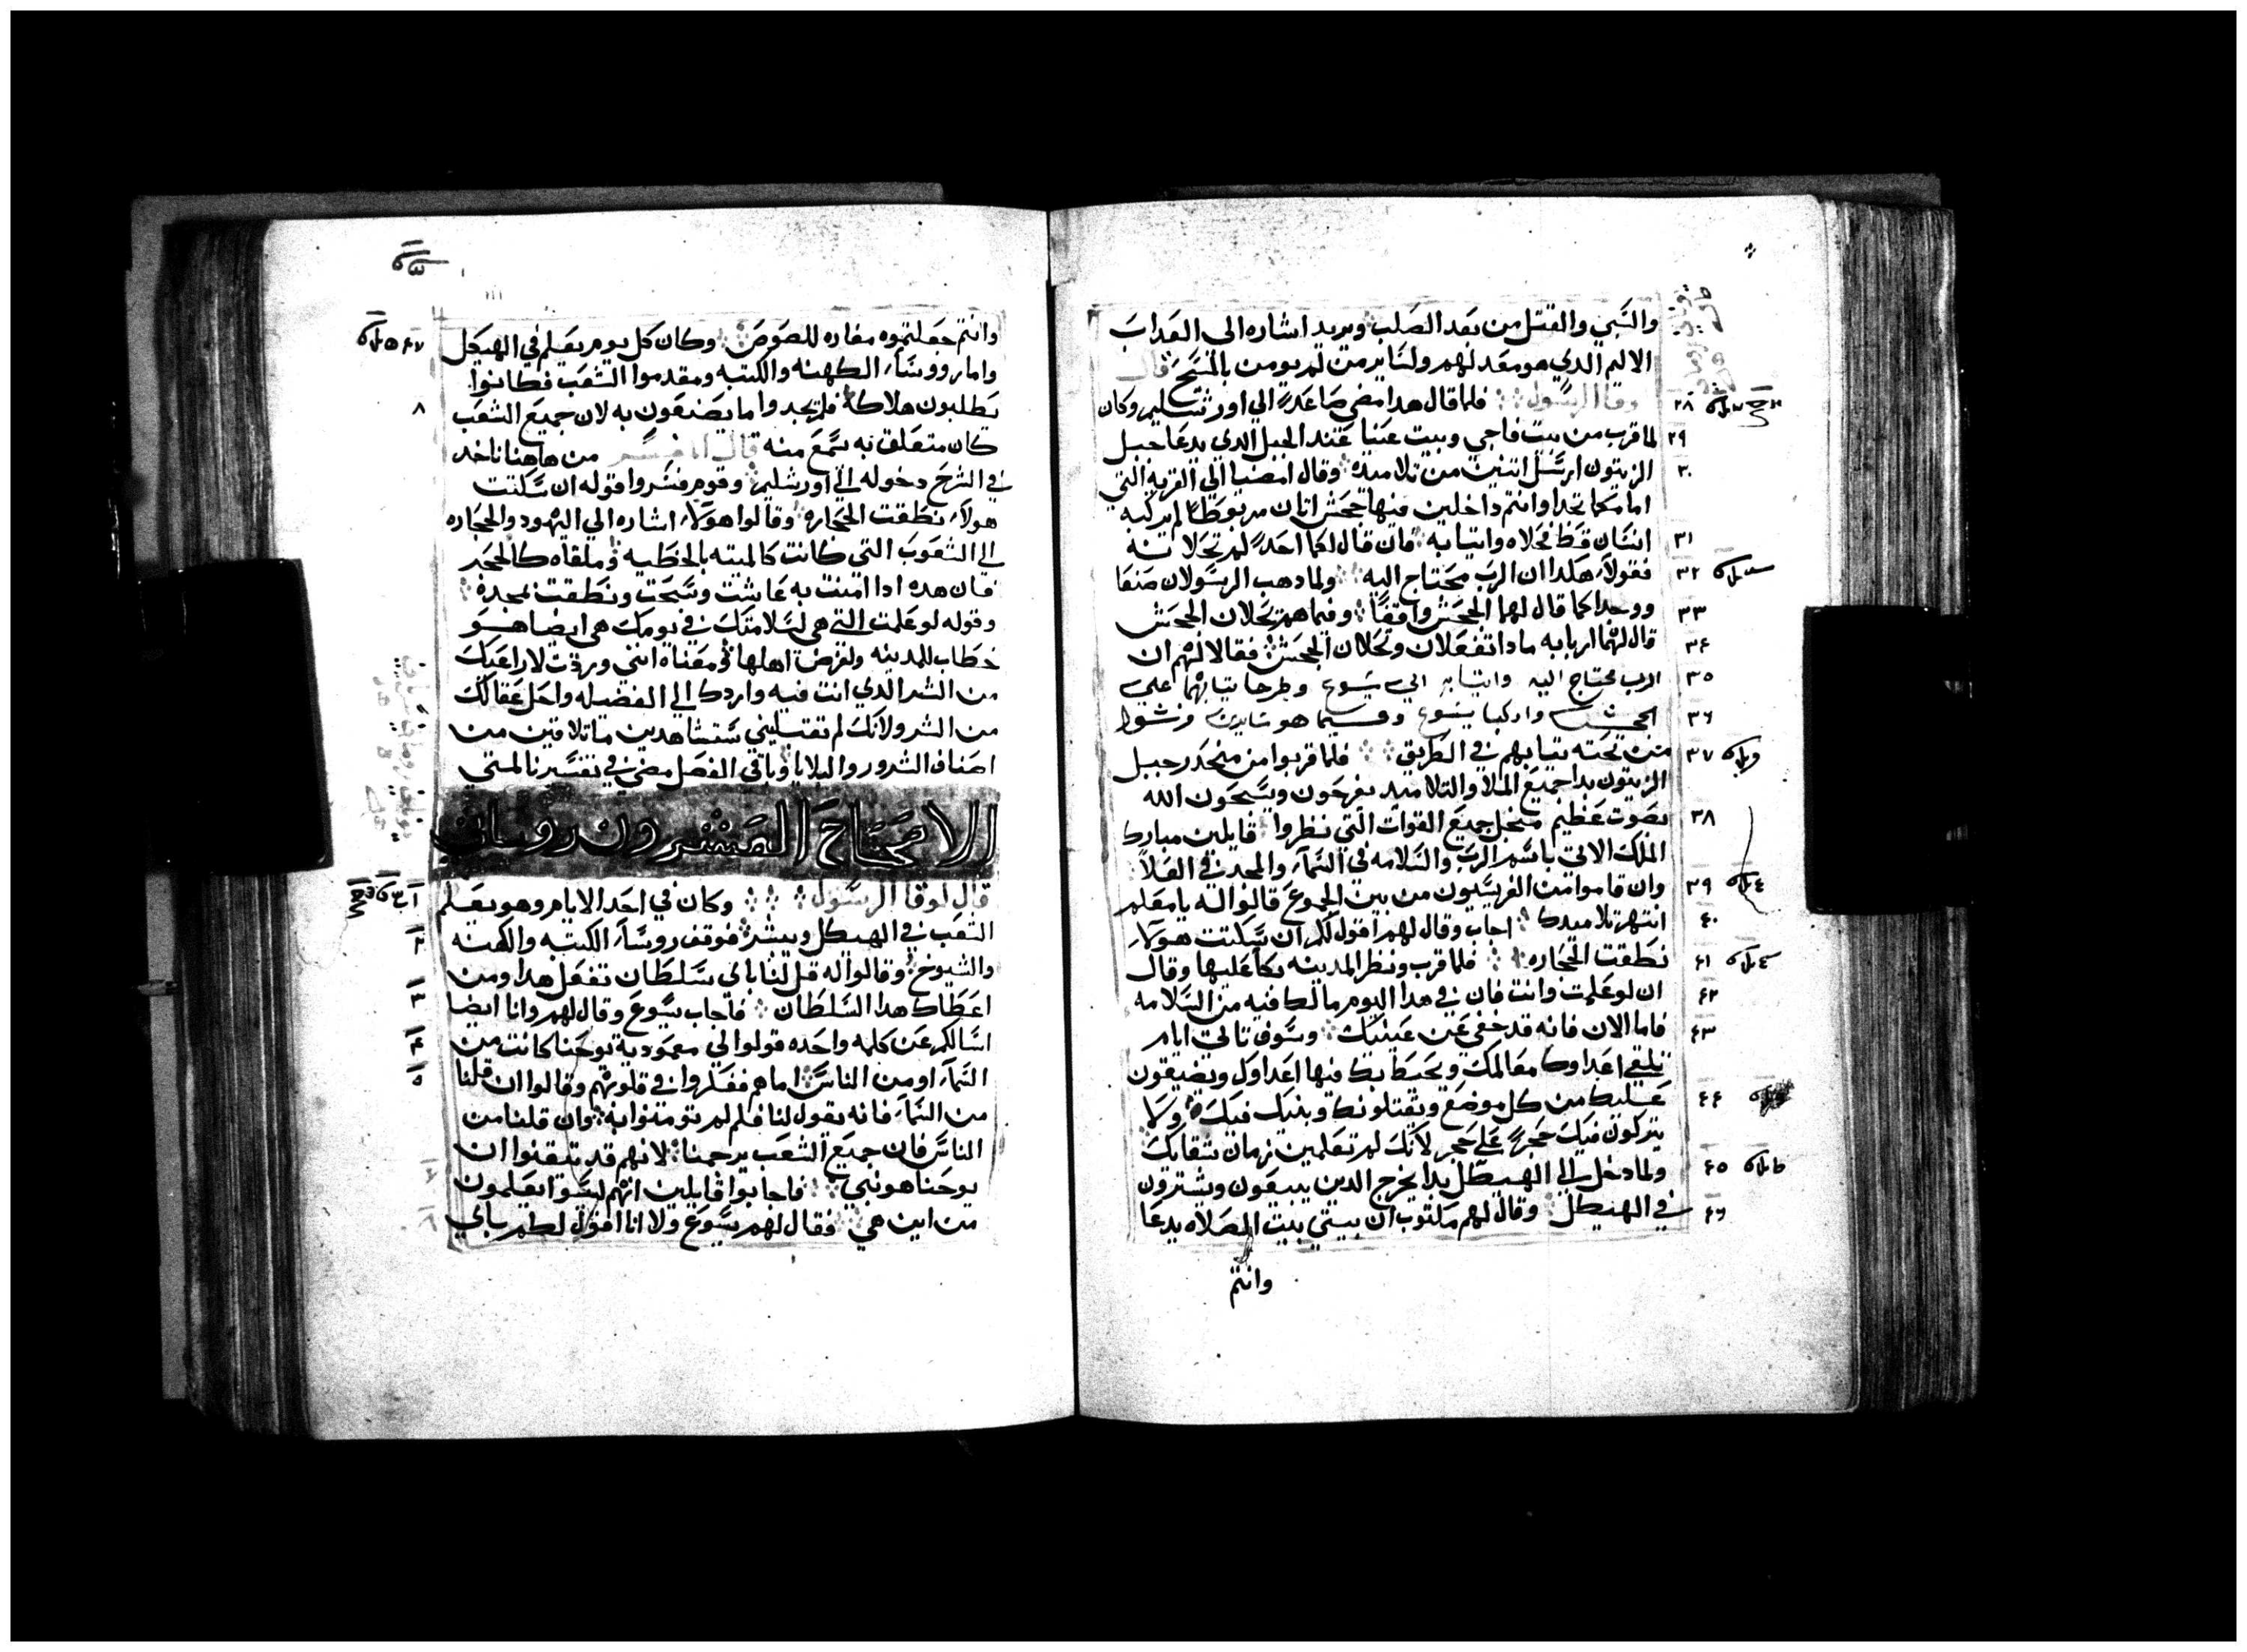 والسبي والقتل من بعد الصلب ويريد اشاره الى العداب
الاليم الدي هو معد لهم ولساير من لم يومن بالمسيح قال
لوقا الرسول فلما قال هدا مضى صاعدا الي اورشليم وكان
٢٨
لما قرب من بيت فاجي وبيت عنيا عند الجبل الدي يدعا جبل
٢٩
الزيتون ارسل اتنين من تلاميده وقال امضيا الى القريه التي
٣٠
امامكما تجدا وانتم داخلين فيها جحش اتان مربوطا لم يركبه
انسان قط فحلاه وايتيا به فان قال لكما احد لم تحلانه
٣١
فقولا هكدا ان الرب محتاج اليه ولما دهب الرسولان صنعا
٣٢
ووجدا كما قال لهما الجحش واقفا وفيما هم يحلان الجحش
٣٣
قال لهما اربابه مادا تفعلان وتحلان الجحش فقالا لهم ان
٣٤
الرب محتاج اليه واتيا به الي يسوع وطرحا تيابهما علي
٣٥
الجحش واركبا يسوع وفيما هو ساير فرشوا
٣٦
من تحته تيابهم في الطريق فلما قربوا من منحدر جبل
٣٧
الزيتون بدا جميع الملا والتلاميد يفرحون ويسبحون الله
بصوت عظيم من اجل جميع القوات التي نظروا قايلين مبارك
٣٨
الملك الاتي باسم الرب والسلامه في السماء والمجد في العلا
وان قاموا من الفريسيون من بين الجموع قالوا له يا معلم
٣٩
انتهر تلاميدك اجاب وقال لهم اقول لكم ان سكتت هولاء
٤٠
نطقت الحجاره فلما قرب ونظر المدينه بكا عليها وقال
٤١
ان لو علمت وانت فان في هدا اليوم مالك فيه من السلامه
٤٢
فاما الان فانه قد خفي عن عينيك وسوف تاتي ايام
٤٣
تلقي اعداوك معالمك وتحيط بك فيها اعداوك ويضيقون
عليك من كل موضع ويقتلونك وبنيك فيك ولا
٤٤
يتركون فيك حجرا على حجر لانك لم تعلمين زمان تتقانك
ولما دخل الي الهيكل بدا يخرج الدين يبيعون ويشترون
٤٥
في الهيكل وقال لهم مكتوب ان بيتي بيت الصلاه يدعا
٤٦
وانتم
وانتم جعلتموه مغاره للصوص وكان كل يوم يعلم في الهيكل
٤٧
واما روسآء الكهنه والكتبه ومقدموا الشعب فكانوا
يطلبون هلاكه فلم يجدوا ما يصنعون به لان جميع الشعب
٨
كان متعلق به يسمع منه قال المفسر من هاهنا ناخد
في الشرح دخوله الى اورشليم وقوم فسروا قوله ان سكتت
هولاء نطقت الحجاره وقالوا هولاء اشاره الي اليهود والحجاره
الي الشعوب التي كانت كالميته بالخطيه وملقاه كالحجر
فان هده ادا امنت به عاشت وسبحت ونطقت بمجده
وقوله لو علمت التي هي لسلامتك في يومك هي ايضا هو
خطاب للمدينه ولغرض اهلها ومعناه انني وردت لاراعيك
من الشر الدي انت فيه واردك الي الفضيله واحل عقالك
من الشر ولانك لم تقبليني ستشاهدين ما تلاقين من
اصناف الشرور والبلايا وباقي الفصل مضى في تفسيرنا لمتي
الاصحاح العشرون روماني
قال لوقا الرسول وكان في احد الايام وهو يعلم
الشعب في الهيكل ويبشر فوقف روسآء الكتبه والكهنه
والشيوخ وقالوا له قل لنا باي سلطان تفعل هدا ومن
اعطاك هدا السلطان فاجاب يسوع وقال لهم وانا ايضا
اسالكم عن كلمه واحده قولوا لي معموديه يوحنا كانت من
السماء او من الناس اما هم ففكروا في قلوبهم وقالوا ان قلنا
من السماء فانه يقول لنا فلم لم تومنوا به وان قلنا من
الناس فان جميع الشعب يرجمنا لانهم قد تيقنوا ان
يوحنا هو نبي فاجابوا قايلين انهم ليسوا يعلمون
من اين هي فقال لهم يسوع ولا انا اقول لكم باي